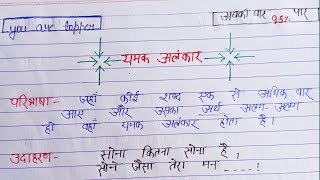 you are topper
अबकी बार 95% पार
यमक अलंकार
परिभाषा - जहां कोई शब्द एक से अधिक बार
आए और उसका अर्थ अलग-अलग
हो वहां यमक अलंकार होता है।
उदाहरण- सोना कितना सोना है,
सोने जैसा तेरा मन ----!